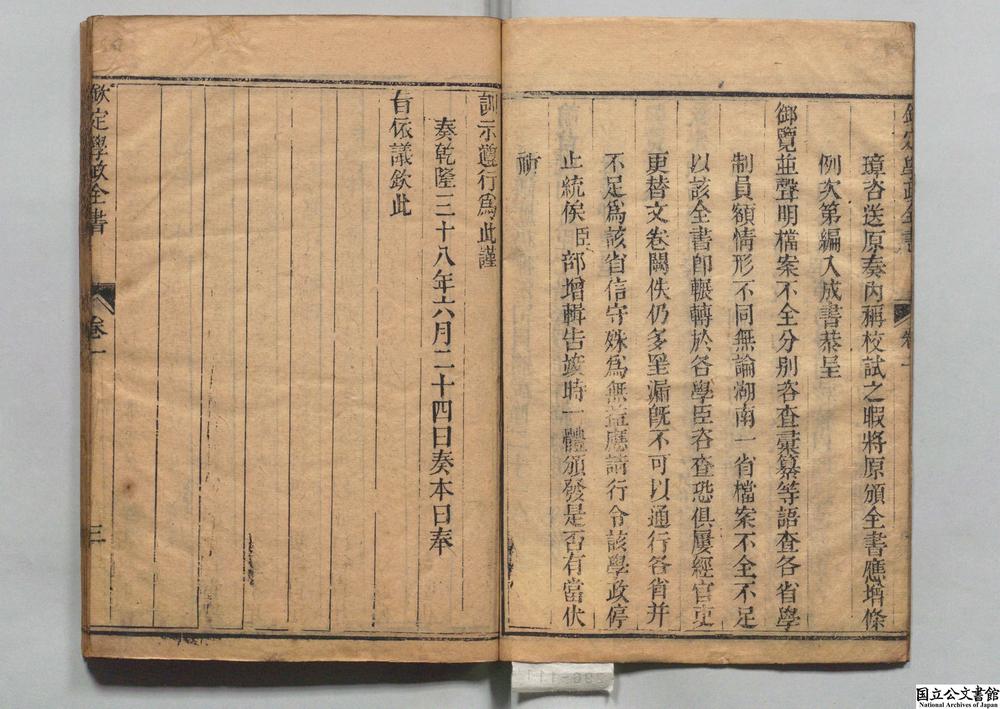 欽定學政全書 卷一
璋咨送原奏內稱校試之暇將原頒全書應增條
例次第編入成書恭呈
御覽並聲明檔案不全分別咨查彙纂等語查各省學
制員額情形不同無論湖南一省檔案不全不足
以該全書卽輾轉於各學臣咨查恐俱屢經官吏
更替文卷闕佚仍多罣漏旣不可以通行各省并
不足爲該省信守殊爲無益應請行令該學政停
止統俟臣部增輯告竣時一體頒發是否有當伏
祈
訓示遵行爲此謹
奏乾隆三十八年六月二十四日奏本日奉
旨依議欽此
欽定學政全書 卷一 三
286-111
国立公文書館
National Archives of Japan